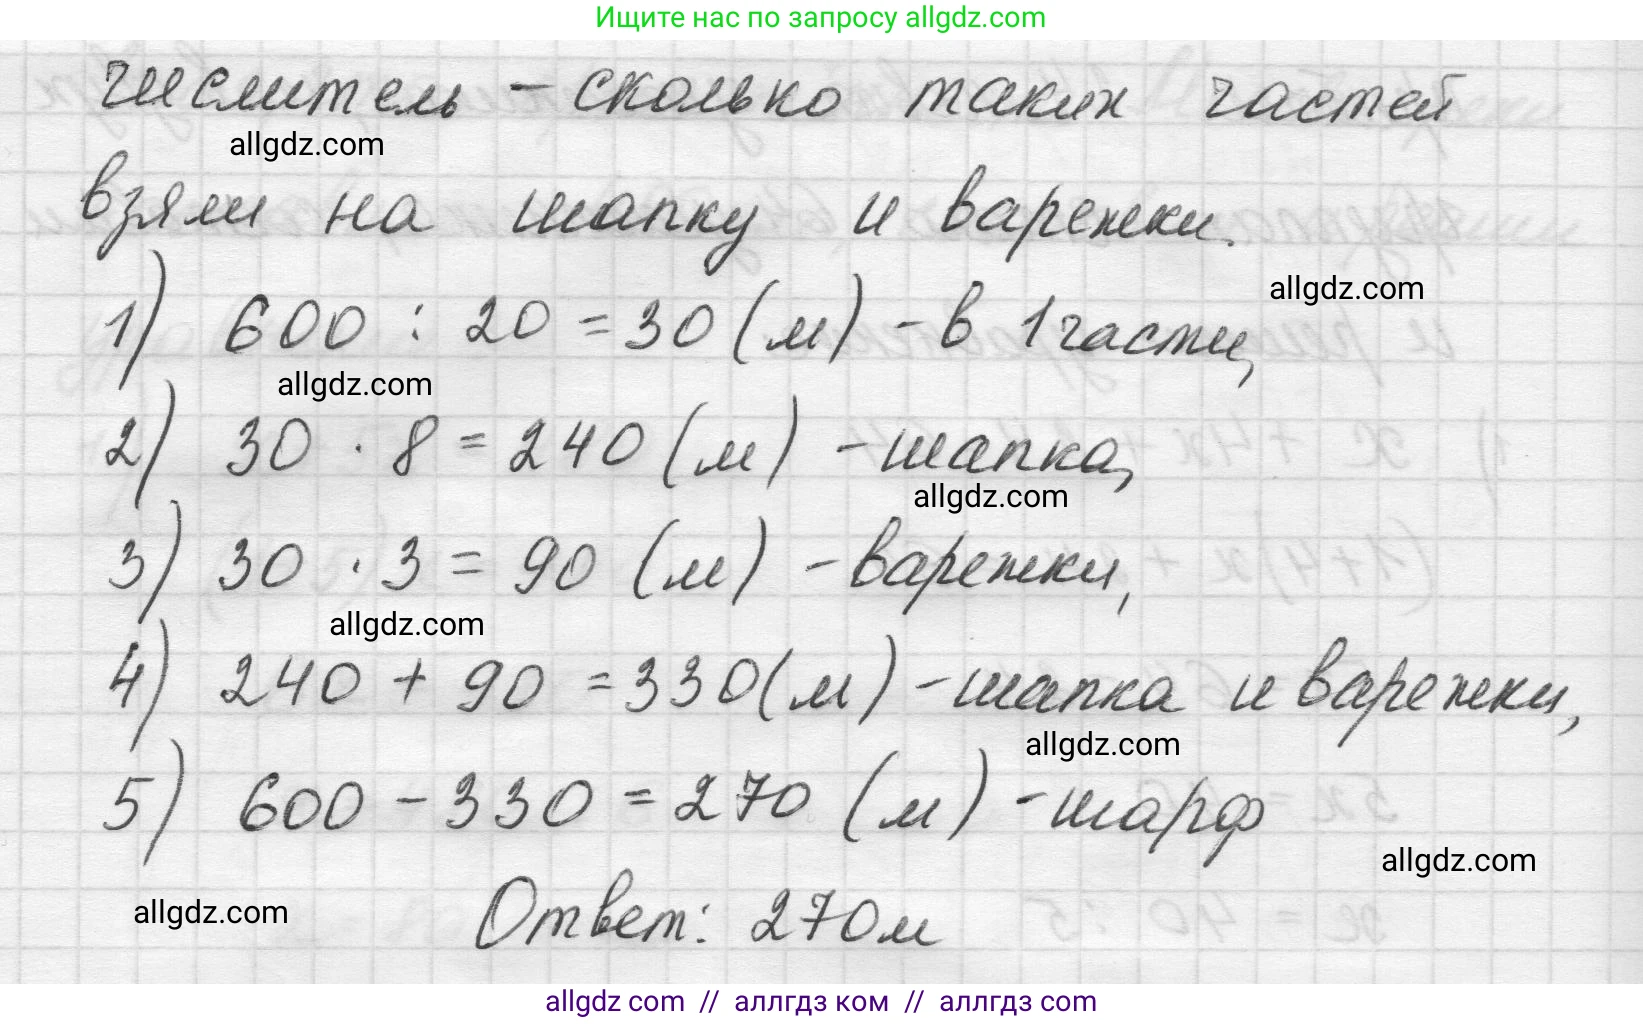 Ищите нас по запросу allgdz.com
числитель – сколько таких частей
allgdz.com
взяли на шапку и варежки.
allgdz.com
1) 600 : 20 = 30 (м) – в 1 части,
allgdz.com
2) 30 · 8 = 240 (м) – шапка,
allgdz.com
3) 30 · 3 = 90 (м) – варежки,
allgdz.com
4) 240 + 90 = 330 (м) – шапка и варежки,
allgdz.com
5) 600 – 330 = 270 (м) – шарф
allgdz.com
allgdz.com
Ответ: 270м
allgdz com // аллгдз ком // аллгдз com